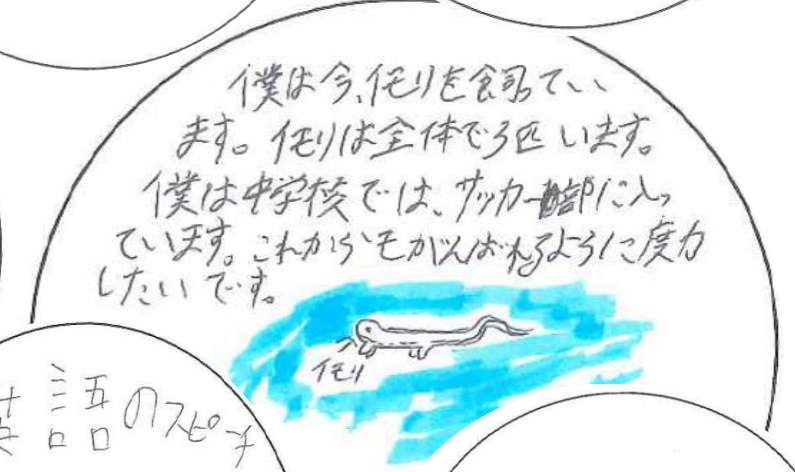 僕は今、イモリを飼ってい
ます。イモリは全体で3匹います。
僕は中学校では、サッカー部に入っ
ています。これからモがんばれるように度力
したいです。
イモリ
英語のスピーチ